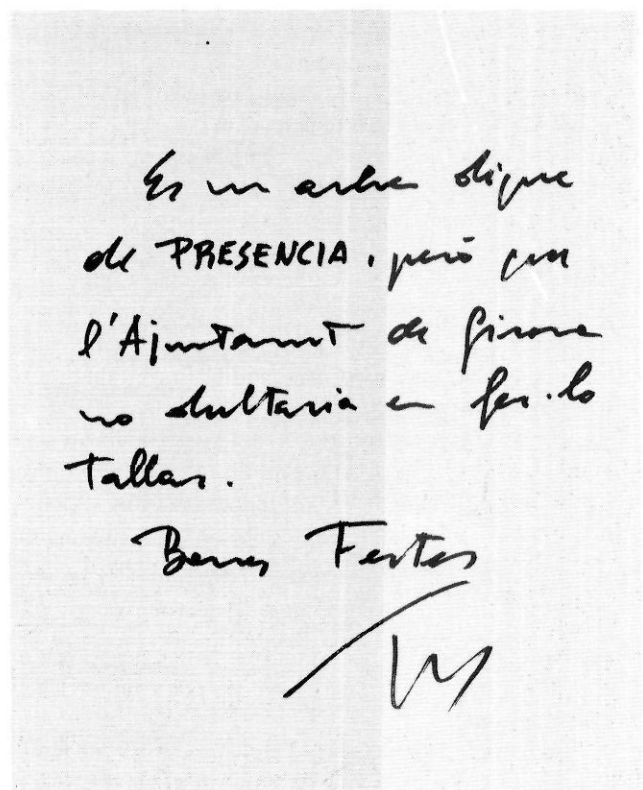 Es un arbre digne
de PRESENCIA, però que
l'Ajuntament de Girona
no dubtaria en fer-lo
tallar.
Bones Festes